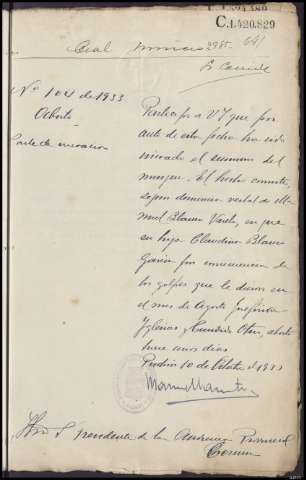 C.1.420.829
641
Nº 104 de 1933
Aborto
Parte de incoación
Participo a V I que por
auto de esta fecha ha sido
incoado el sumario del
margen. El hecho consiste,
según denuncia verbal de Ma
nuel Blanco Varela, en que
su hija Claudina Blanco
García por consecuencia de
los golpes que le dieron en
el mes de Agosto
Iglesias y Cándida Otero, abortó
hace unos días
Padrón 10 de Octubre de 1933
Presidente de la Audiencia Provincial
Coruña